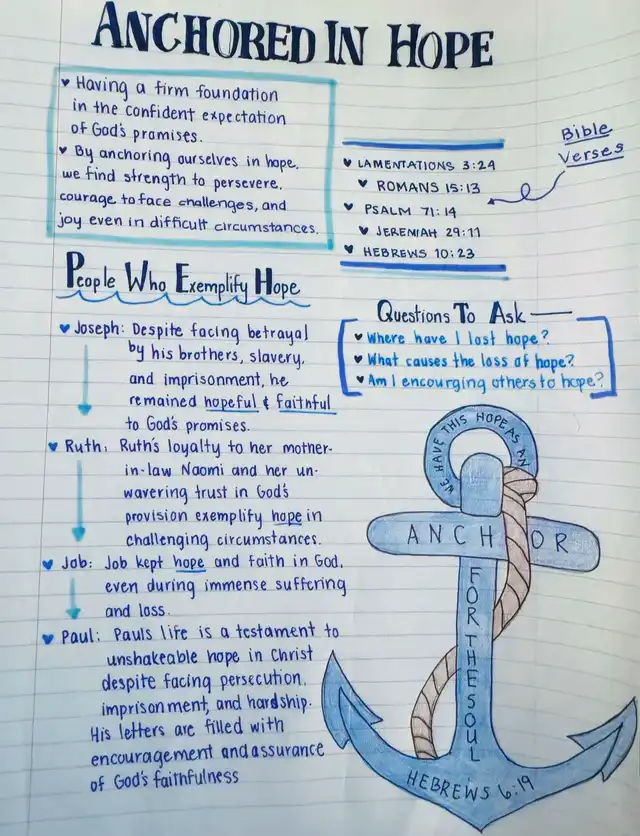 ANCHORED IN HOPE
♥ Having a firm foundation
in the confident expectation
of God's promises.
♥ By anchoring ourselves in hope,
we find strength to persevere,
courage to face challenges, and
joy even in difficult circumstances.
Bible
Verses
♥ LAMENTATIONS 3:24
♥ ROMANS 15:13
♥ PSALM 71:14
♥ JEREMIAH 29:11
♥ HEBREWS 10:23
People Who Exemplify Hope
♥ Joseph: Despite facing betrayal
by his brothers, slavery,
and imprisonment, he
remained hopeful & faithful
to God's promises.
♥ Ruth: Ruth's loyalty to her mother-
in-law Naomi and her un-
wavering trust in God's
provision exemplify hope in
challenging circumstances.
♥ Job: Job kept hope and faith in God,
even during immense suffering
and loss.
♥ Paul: Pauls life is a testament to
unshakeable hope in Christ
despite facing persecution,
imprisonment, and hardship.
His letters are filled with
encouragement and assurance
of God's faithfulness
Questions To Ask
♥ Where have I lost hope?
♥ What causes the loss of hope?
♥ Am I encourging others to hope?
WE HAVE THIS HOPE AS AN
ANCHOR
FOR THE SOUL
HEBREWS 6:19